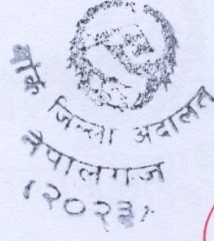 बाँके जिल्ला अदालत
नेपालगन्ज
(२०२३)